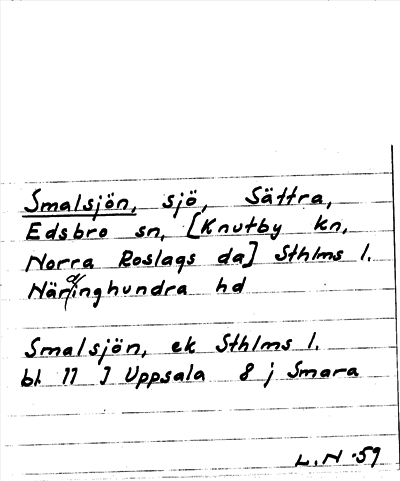 Smalsjön, sjö, Sättra,
Edsbro sn, [Knutby kn,
Norra Roslags da] Sthlms l.
Närdinghundra hd
Smalsjön, ek Sthlms l.
bl 11 I Uppsala 8 j Smara
L.N -59